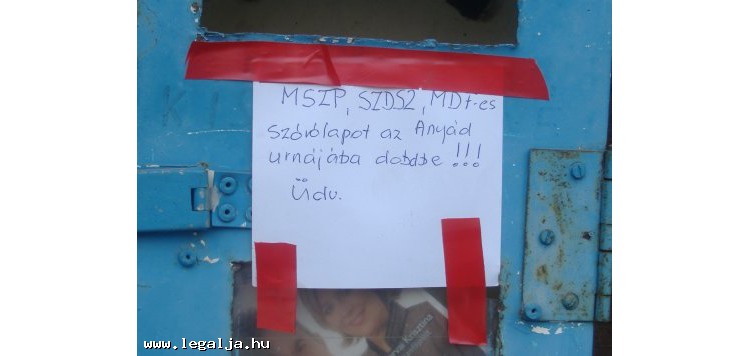 MSZP, SZDSZ, MDF-es
szórólapot az Anyád
urnájába dobd be !!!
Üdv.
Krisztina
www.legalja.hu